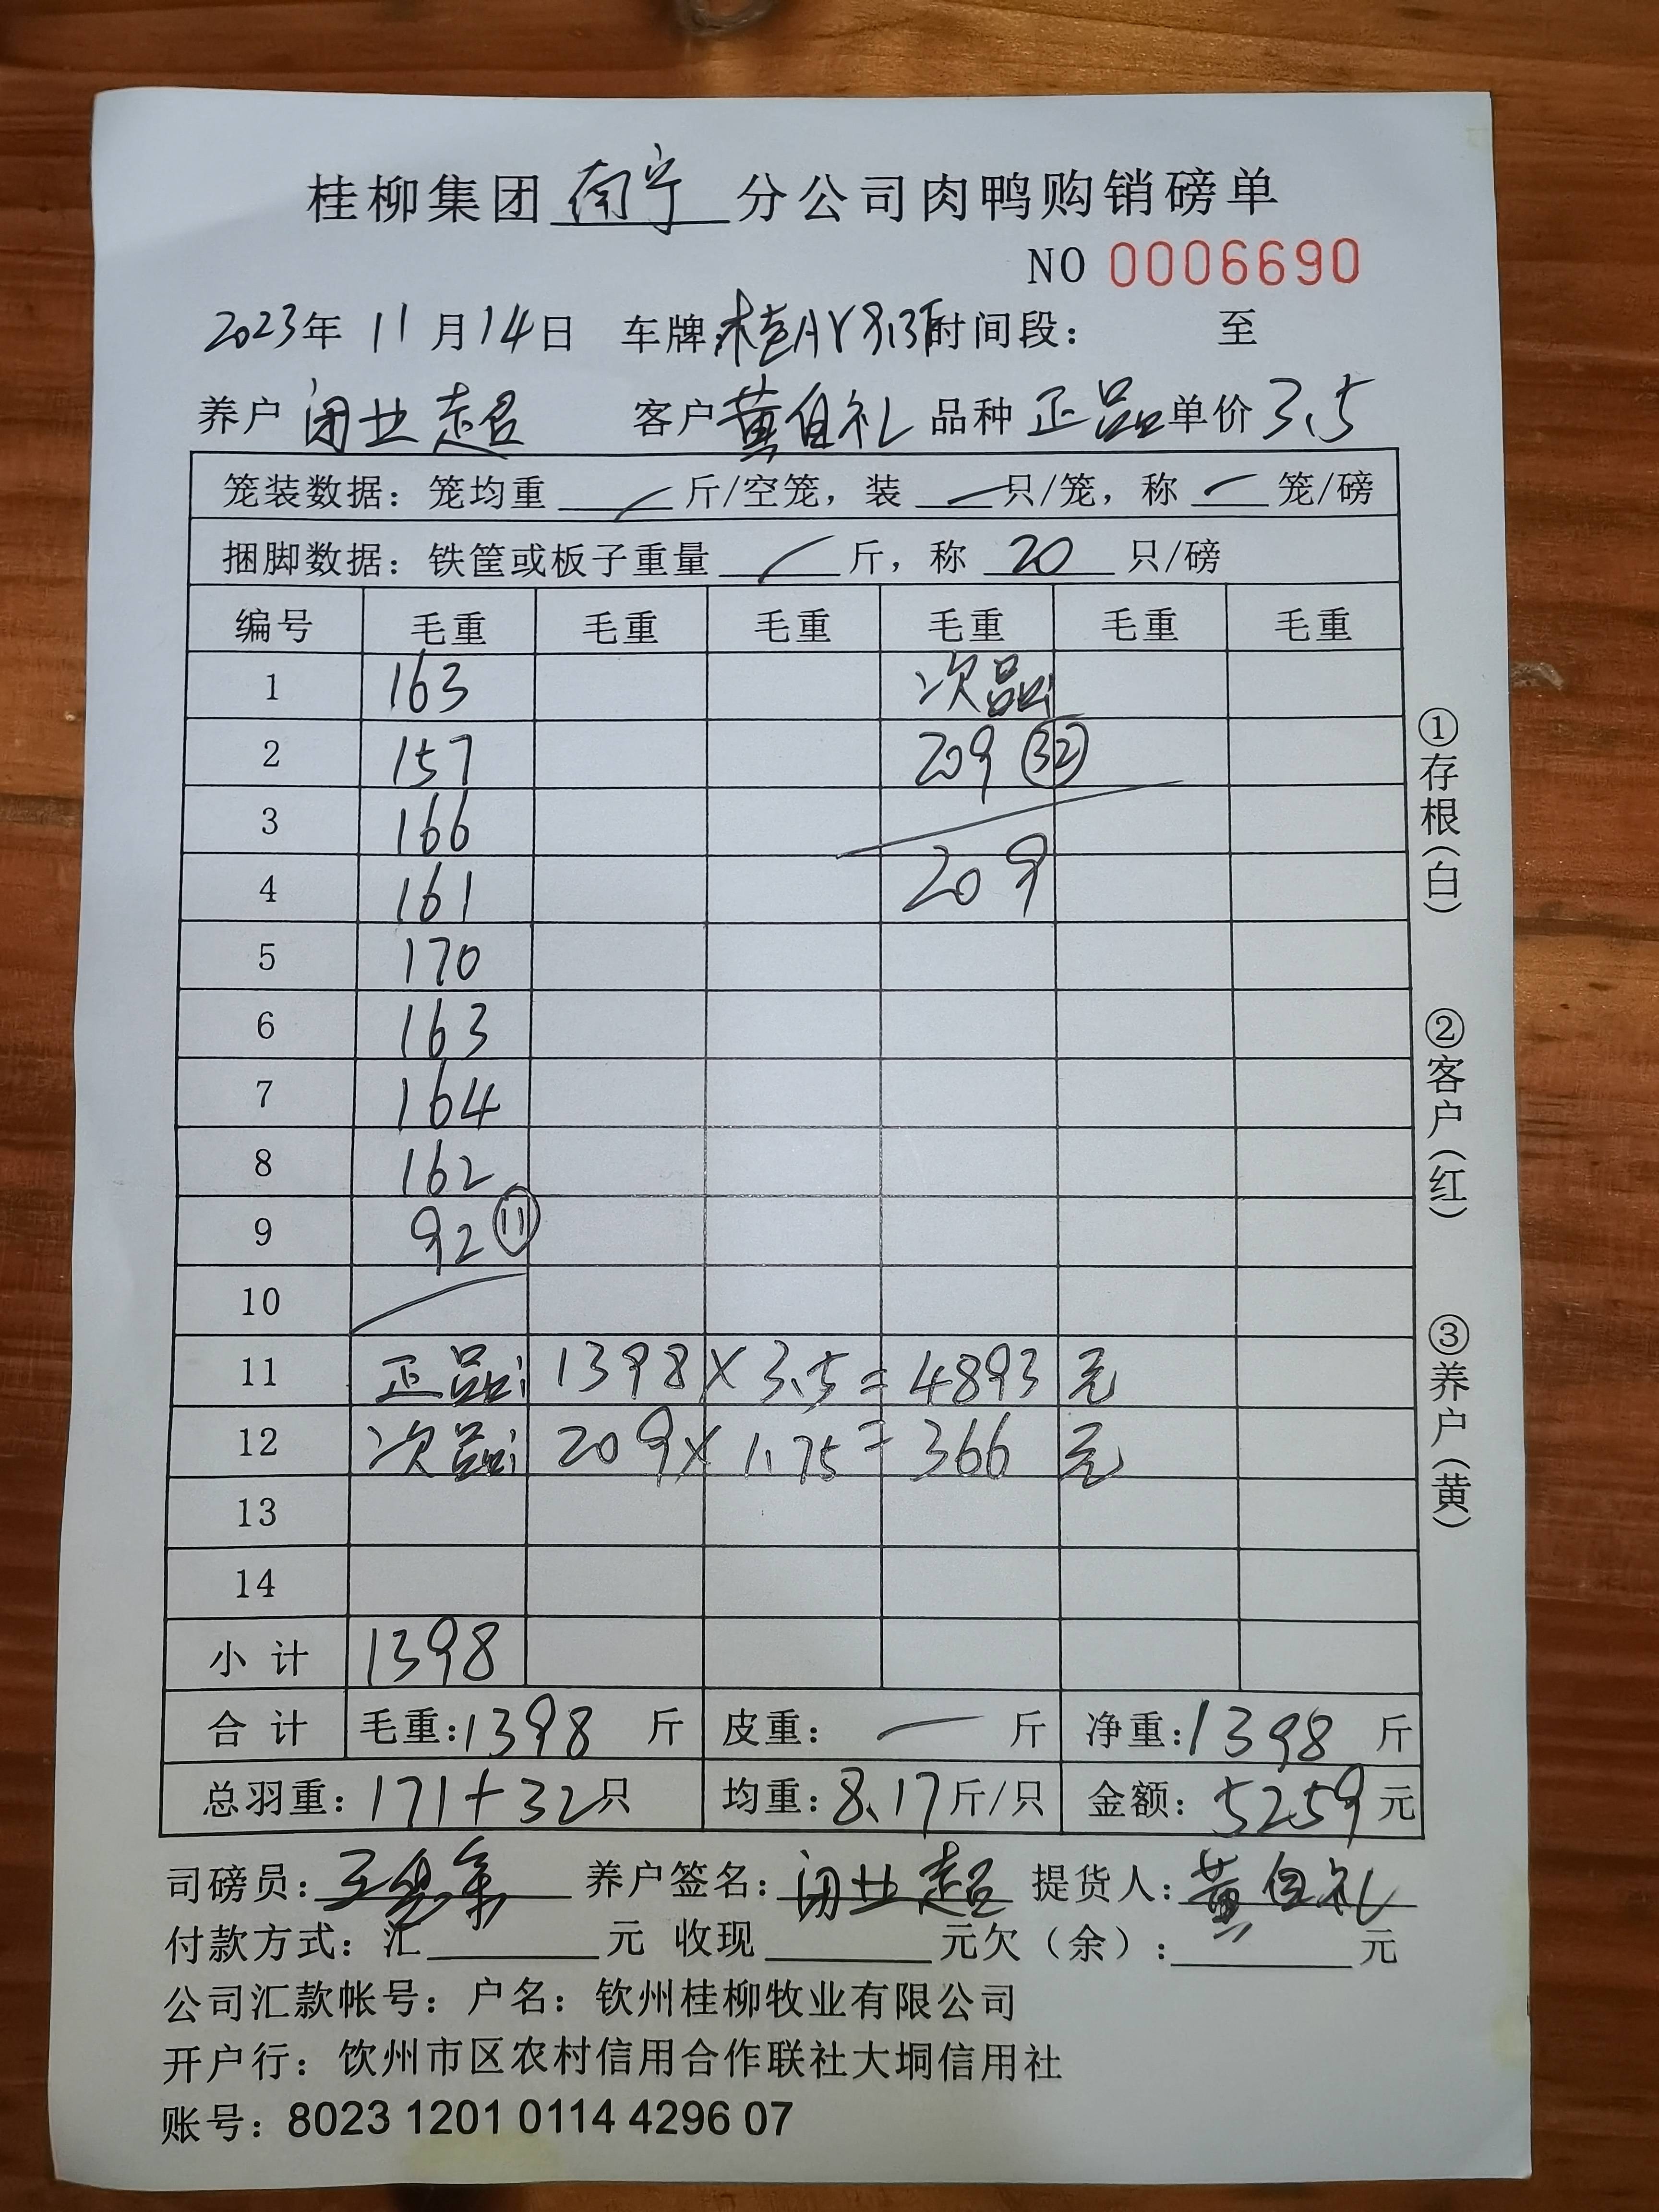 桂柳集团 南宁 分公司肉鸭购销磅单
NO 0006690
2023年 11月14日 车牌 桂AY 时间段： 至
养户 闭业超 客户 黄自礼 品种 正品 单价 3.5
笼装数据：笼均重 斤/空笼，装 只/笼，称 笼/磅
捆脚数据：铁筐或板子重量 斤，称 20 只/磅
编号 毛重 毛重 毛重 毛重 毛重 毛重
1 163 次品:
2 157 209 ㉜
3 166
4 161 209
5 170
6 163
7 164
8 162
9 92 ⑪
10
11 正品: 1398 × 3.5 = 4893 元
12 次品: 209 × 1.75 = 366 元
13
14
小计 1398
合计 毛重:1398 斤 皮重: — 斤 净重:1398 斤
总羽重:171+32只 均重:8.17斤/只 金额:5259元
司磅员: 养户签名:闭业超 提货人:黄自礼
付款方式：汇 元 收现 元欠（余）: 元
公司汇款帐号：户名：钦州桂柳牧业有限公司
开户行：饮州市区农村信用合作联社大垌信用社
账号：8023 1201 0114 4296 07
①存根（白）
②客户（红）
③养户（黄）